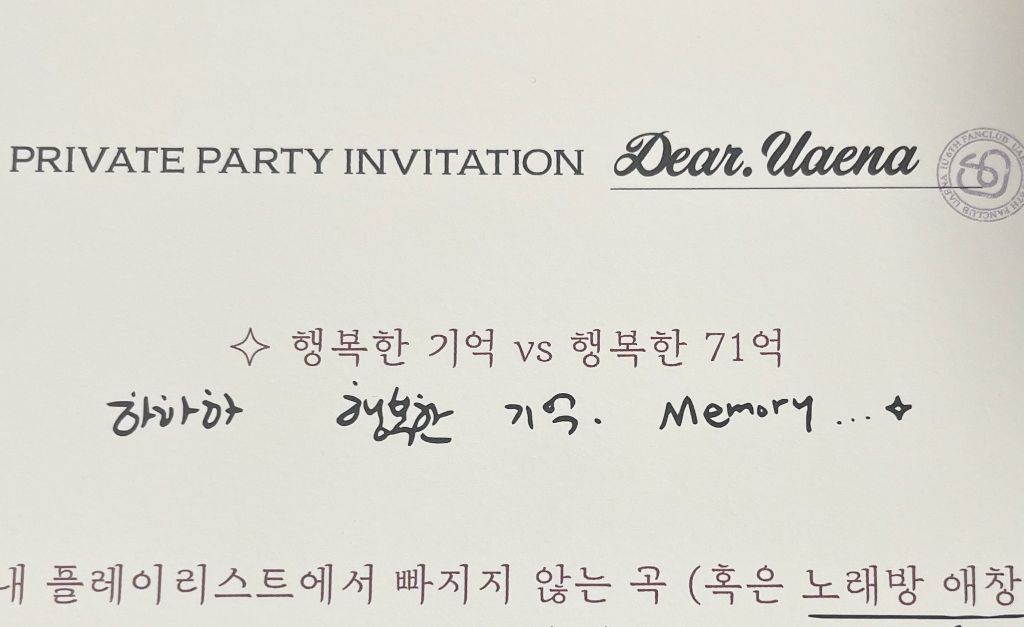 PRIVATE PARTY INVITATION Dear. Uaena
✧ 행복한 기억 vs 행복한 71억
하하하 행복한 기억. Memory... ✦
내 플레이리스트에서 빠지지 않는 곡 (혹은 노래방 애창